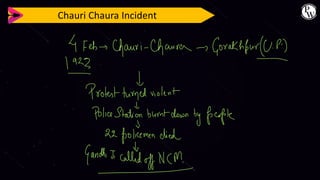 Chauri Chaura Incident
4 Feb → Chauri-Chaura → Gorakhpur (U.P.)
1922
Protest turned violent
Police Station burnt down by people
22 policemen died
Gandhi Ji called off NCM.